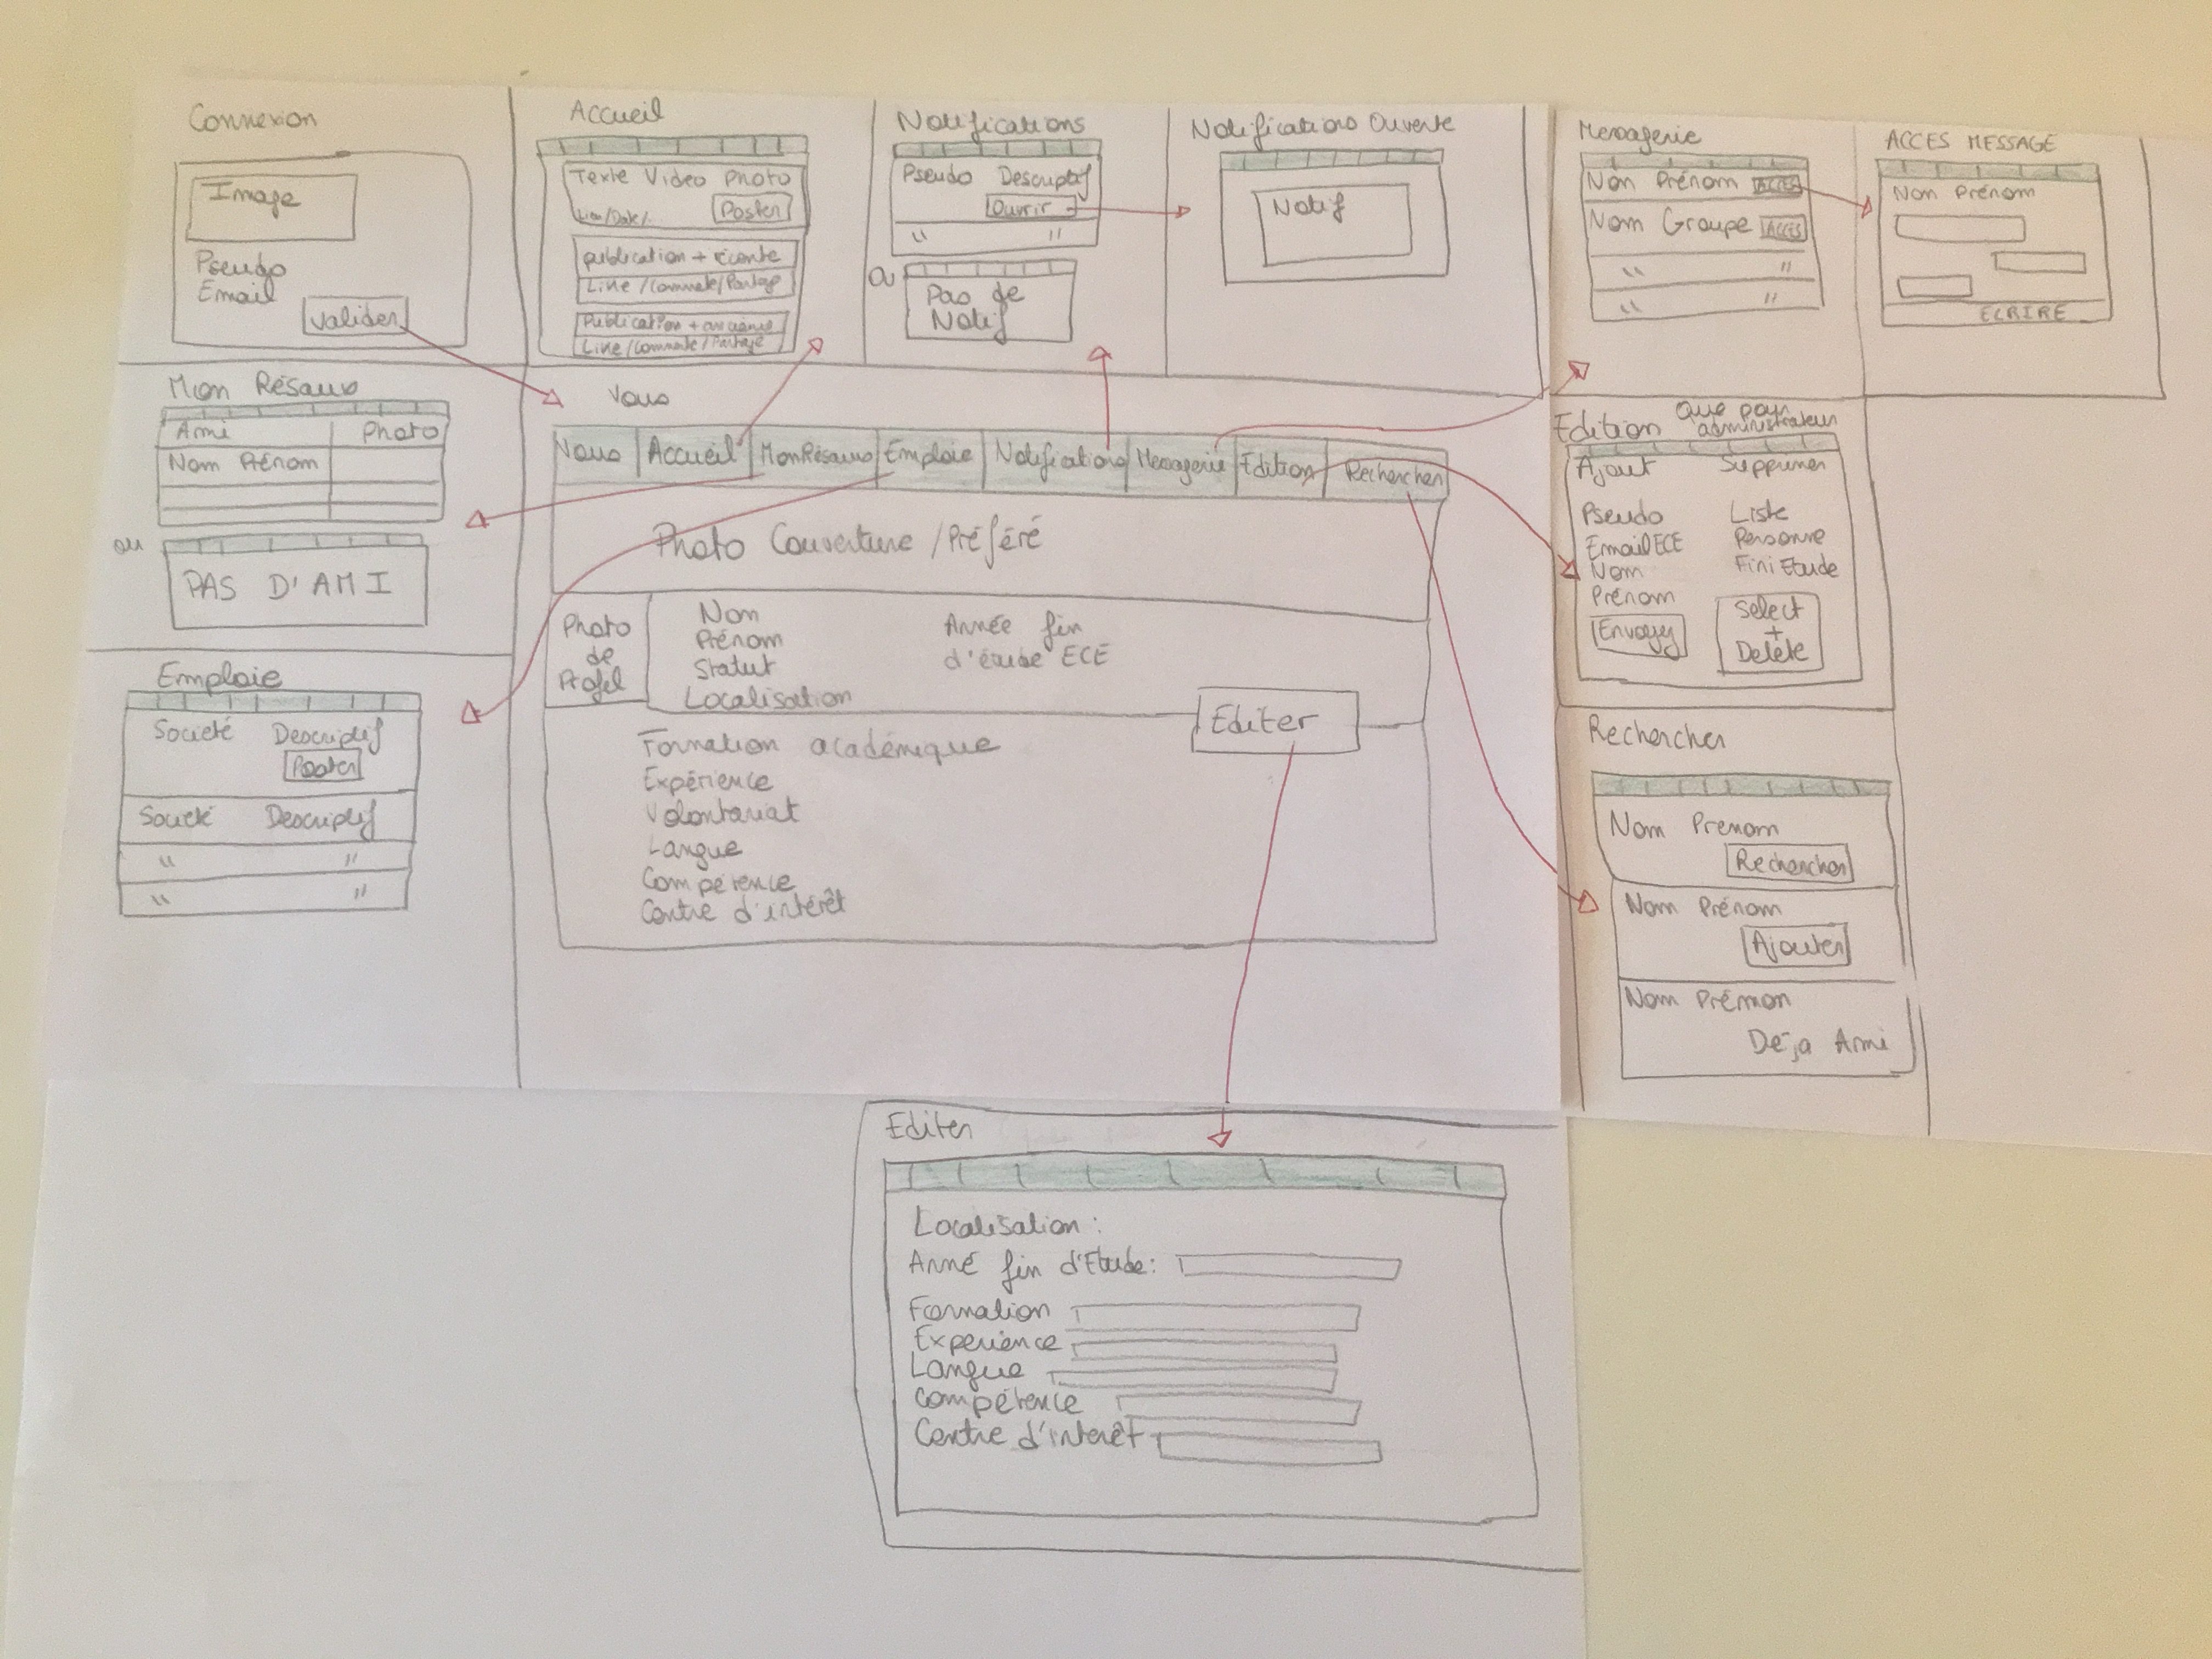 Connexion
Image
Pseudo
Email
Valider
Accueil
Texte Video Photo
Poster
publication + récente
Like / Commente / Partage
Publication + ancienne
Like / Commente / Partage
Notifications
Pseudo Descriptif
Ouvrir
" "
Ou
Pas de
Notif
Notifications Ouverte
Notif
Messagerie
Nom Prénom ACCES
Nom Groupe ACCES
" "
" "
ACCES MESSAGE
Nom Prénom
ECRIRE
Mon Résaux
Ami Photo
Nom Prénom
ou
PAS D'AMI
Emploie
Societé Descriptif
Poster
Societé Descriptif
" "
" "
Vous
Vous Accueil Mon Résaux Emploie Notifications Messagerie Edition Rechercher
Photo Couverture / Préféré
Photo
de
Profil
Nom
Prénom
Statut
Localisation
Année fin
d'étude ECE
Editer
Formation académique
Expérience
Volontariat
Langue
Compétence
Centre d'intérêt
Edition Que pour
administrateur
Ajout Supprimer
Pseudo Liste
Email ECE Personne
Nom Fini Etude
Prénom
Envoyer
Select
+
Delete
Rechercher
Nom Prenom
Rechercher
Nom Prénom
Ajouter
Nom Prémon
Déja Ami
Editer
Localisation :
Anné fin d'Etude :
Formation
Experience
Langue
Compétence
Centre d'interêt